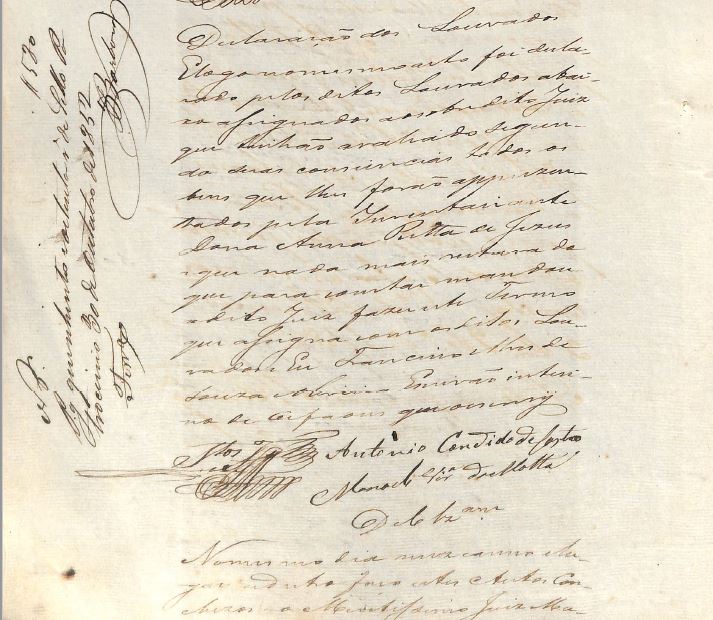 Declaração dos Louvados
E logo no mesmo acto foi decla-
rado pelos ditos Louvados abai-
xo assignados ao sobredito Juiz
que tinhão avaliado segun-
do suas consciencias todos os
bens que lhes forão appresen-
tados pela Inventariante
Dona Anna Ritta de Jezus
e que nada mais restava do
que para constar mandou
o dito Juiz fazer este Termo
que assigna com os ditos Lou-
vados Eu Francisco de
Souza Escrivão interi-
no de Orfaons que o escrevy
Antonio Candido de Castro
Manoel da Motta
No mesmo dia mez e anno e lu-
gar
o Meritissimo Juiz Mu-
N
1520
Pg quinhentos e vinte reis de Sello
Patrocinio 30 de Outubro de 1852